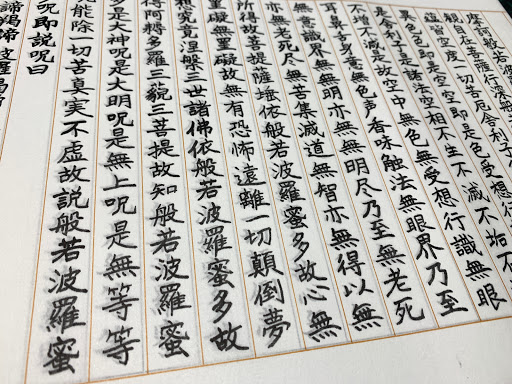 摩訶般若波
観自在菩薩行深般
蘊皆空度一切苦厄舎利子
異色色即是空空即是色受想行
是舎利子是諸法空相不生不滅不垢不
不増不減是故空中無色無受想行識無眼
耳鼻舌身意無色声香味触法無眼界乃至
無意識界無無明亦無無明尽乃至無老死
亦無老死尽無苦集滅道無智亦無得以無
所得故菩提薩埵依般若波羅蜜多故心無
罣礙無罣礙故無有恐怖遠離一切顛倒夢
想究竟涅槃三世諸佛依般若波羅蜜多故
得阿耨多羅三藐三菩提故知般若波羅蜜
多是大神呪是大明呪是無上呪是無等等
能除一切苦真実不虚故説般若波羅蜜
呪即説呪曰
諦羯諦波羅羯